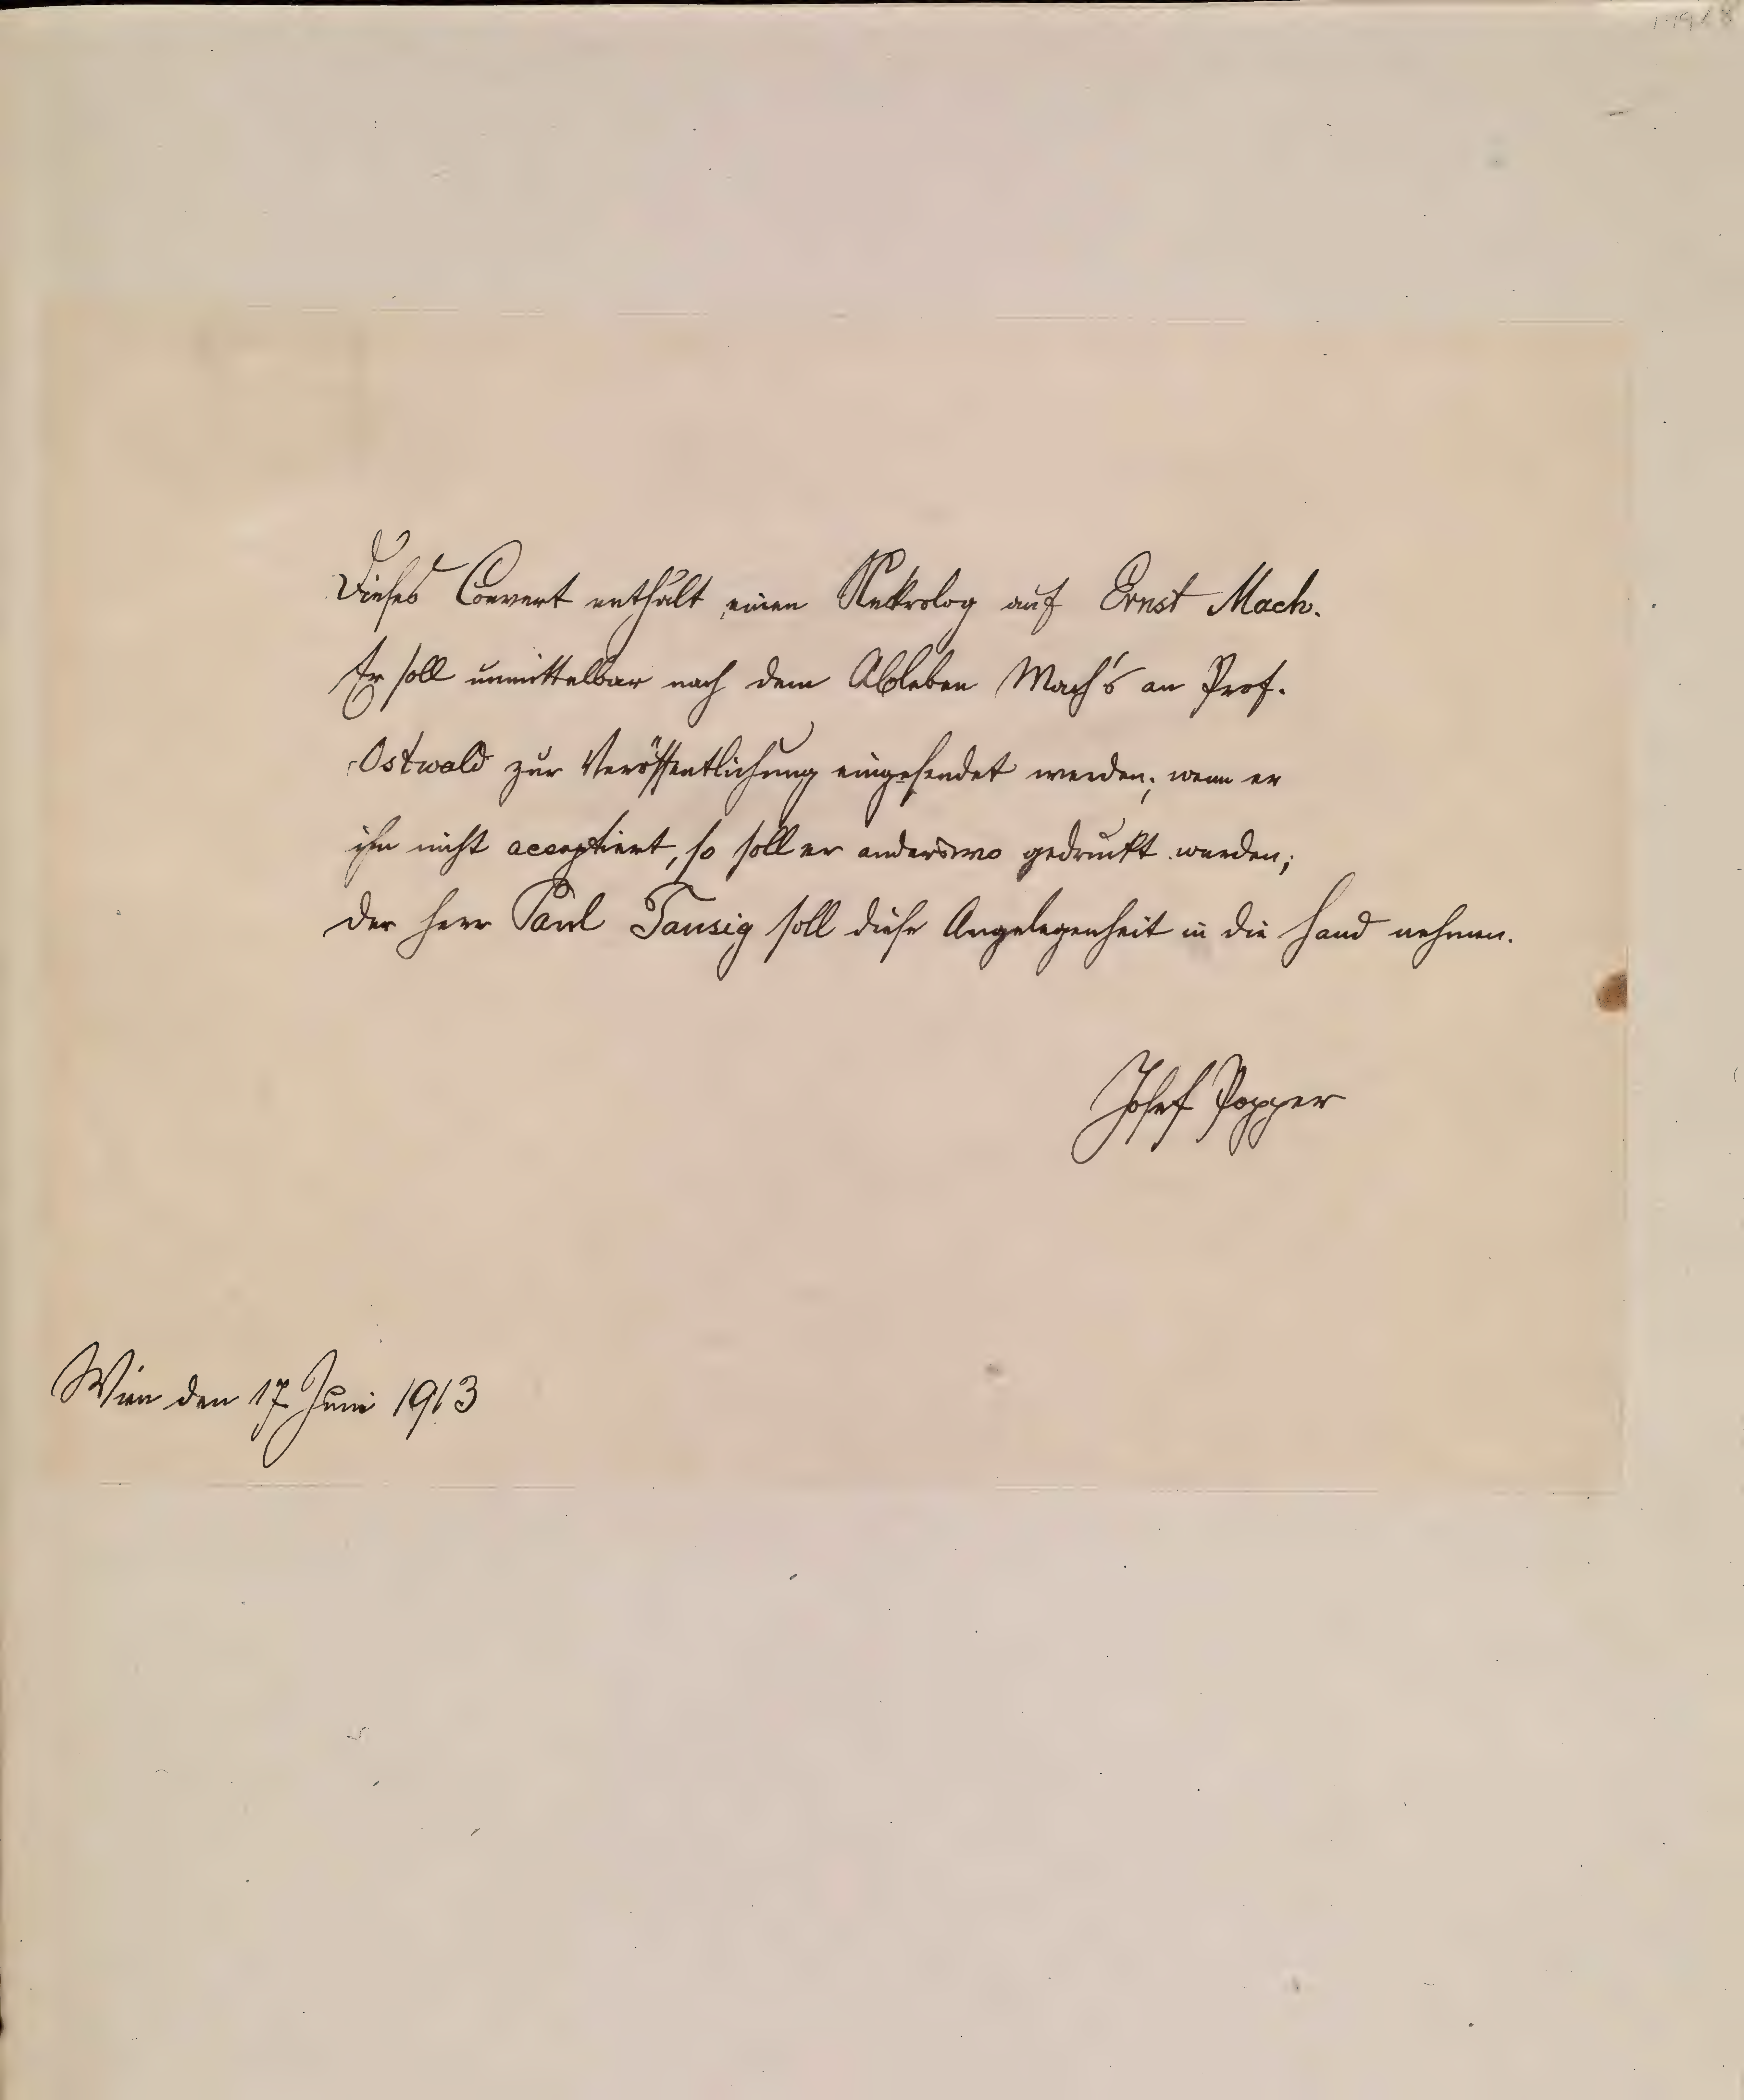 Dieses Couvert enthält einen Nekrolog auf Ernst Mach.
Er soll unmittelbar nach dem Ableben Mach's an Prof.
Ostwald zur Veröffentlichung eingesendet werden; wenn er
ihn nicht acceptiert, so soll er anderswo gedruckt werden;
der Herr Paul Tausig soll diese Angelegenheit in die Hand nehmen.
Josef Popper
Wien den 17. Juni 1913